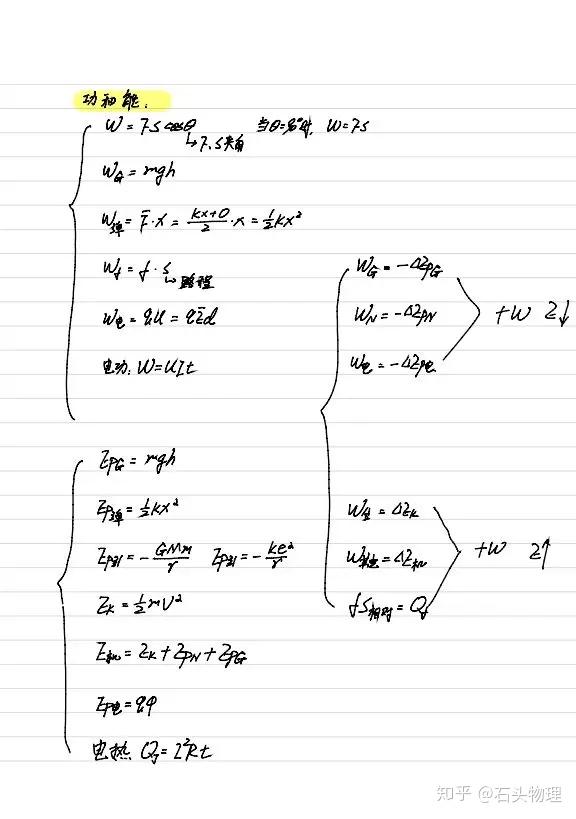 功和能.
W = FScosθ 当θ=90°时, W=FS
↳F,S夹角
W_G = mgh
W弹 = F̄·x = (kx+0)/2·x = ½kx²
W_f = f·S↳路程
W电 = qU = qEd
电功: W=UIt
E_PG = mgh
E_P弹 = ½kx²
E_P引 = -GMm/r E_P引 = -ke²/r
E_K = ½mV²
E机 = E_K + E_PN + E_PG
E_P电 = qφ
电热 Q_J = I²Rt
W_G = -ΔE_PG
W_N = -ΔE_PN +W E↓
W电 = -ΔE_P电
W全 = ΔE_K
W其他 = ΔE机 +W E↑
fS相对 = Q_f
知乎 @石头物理